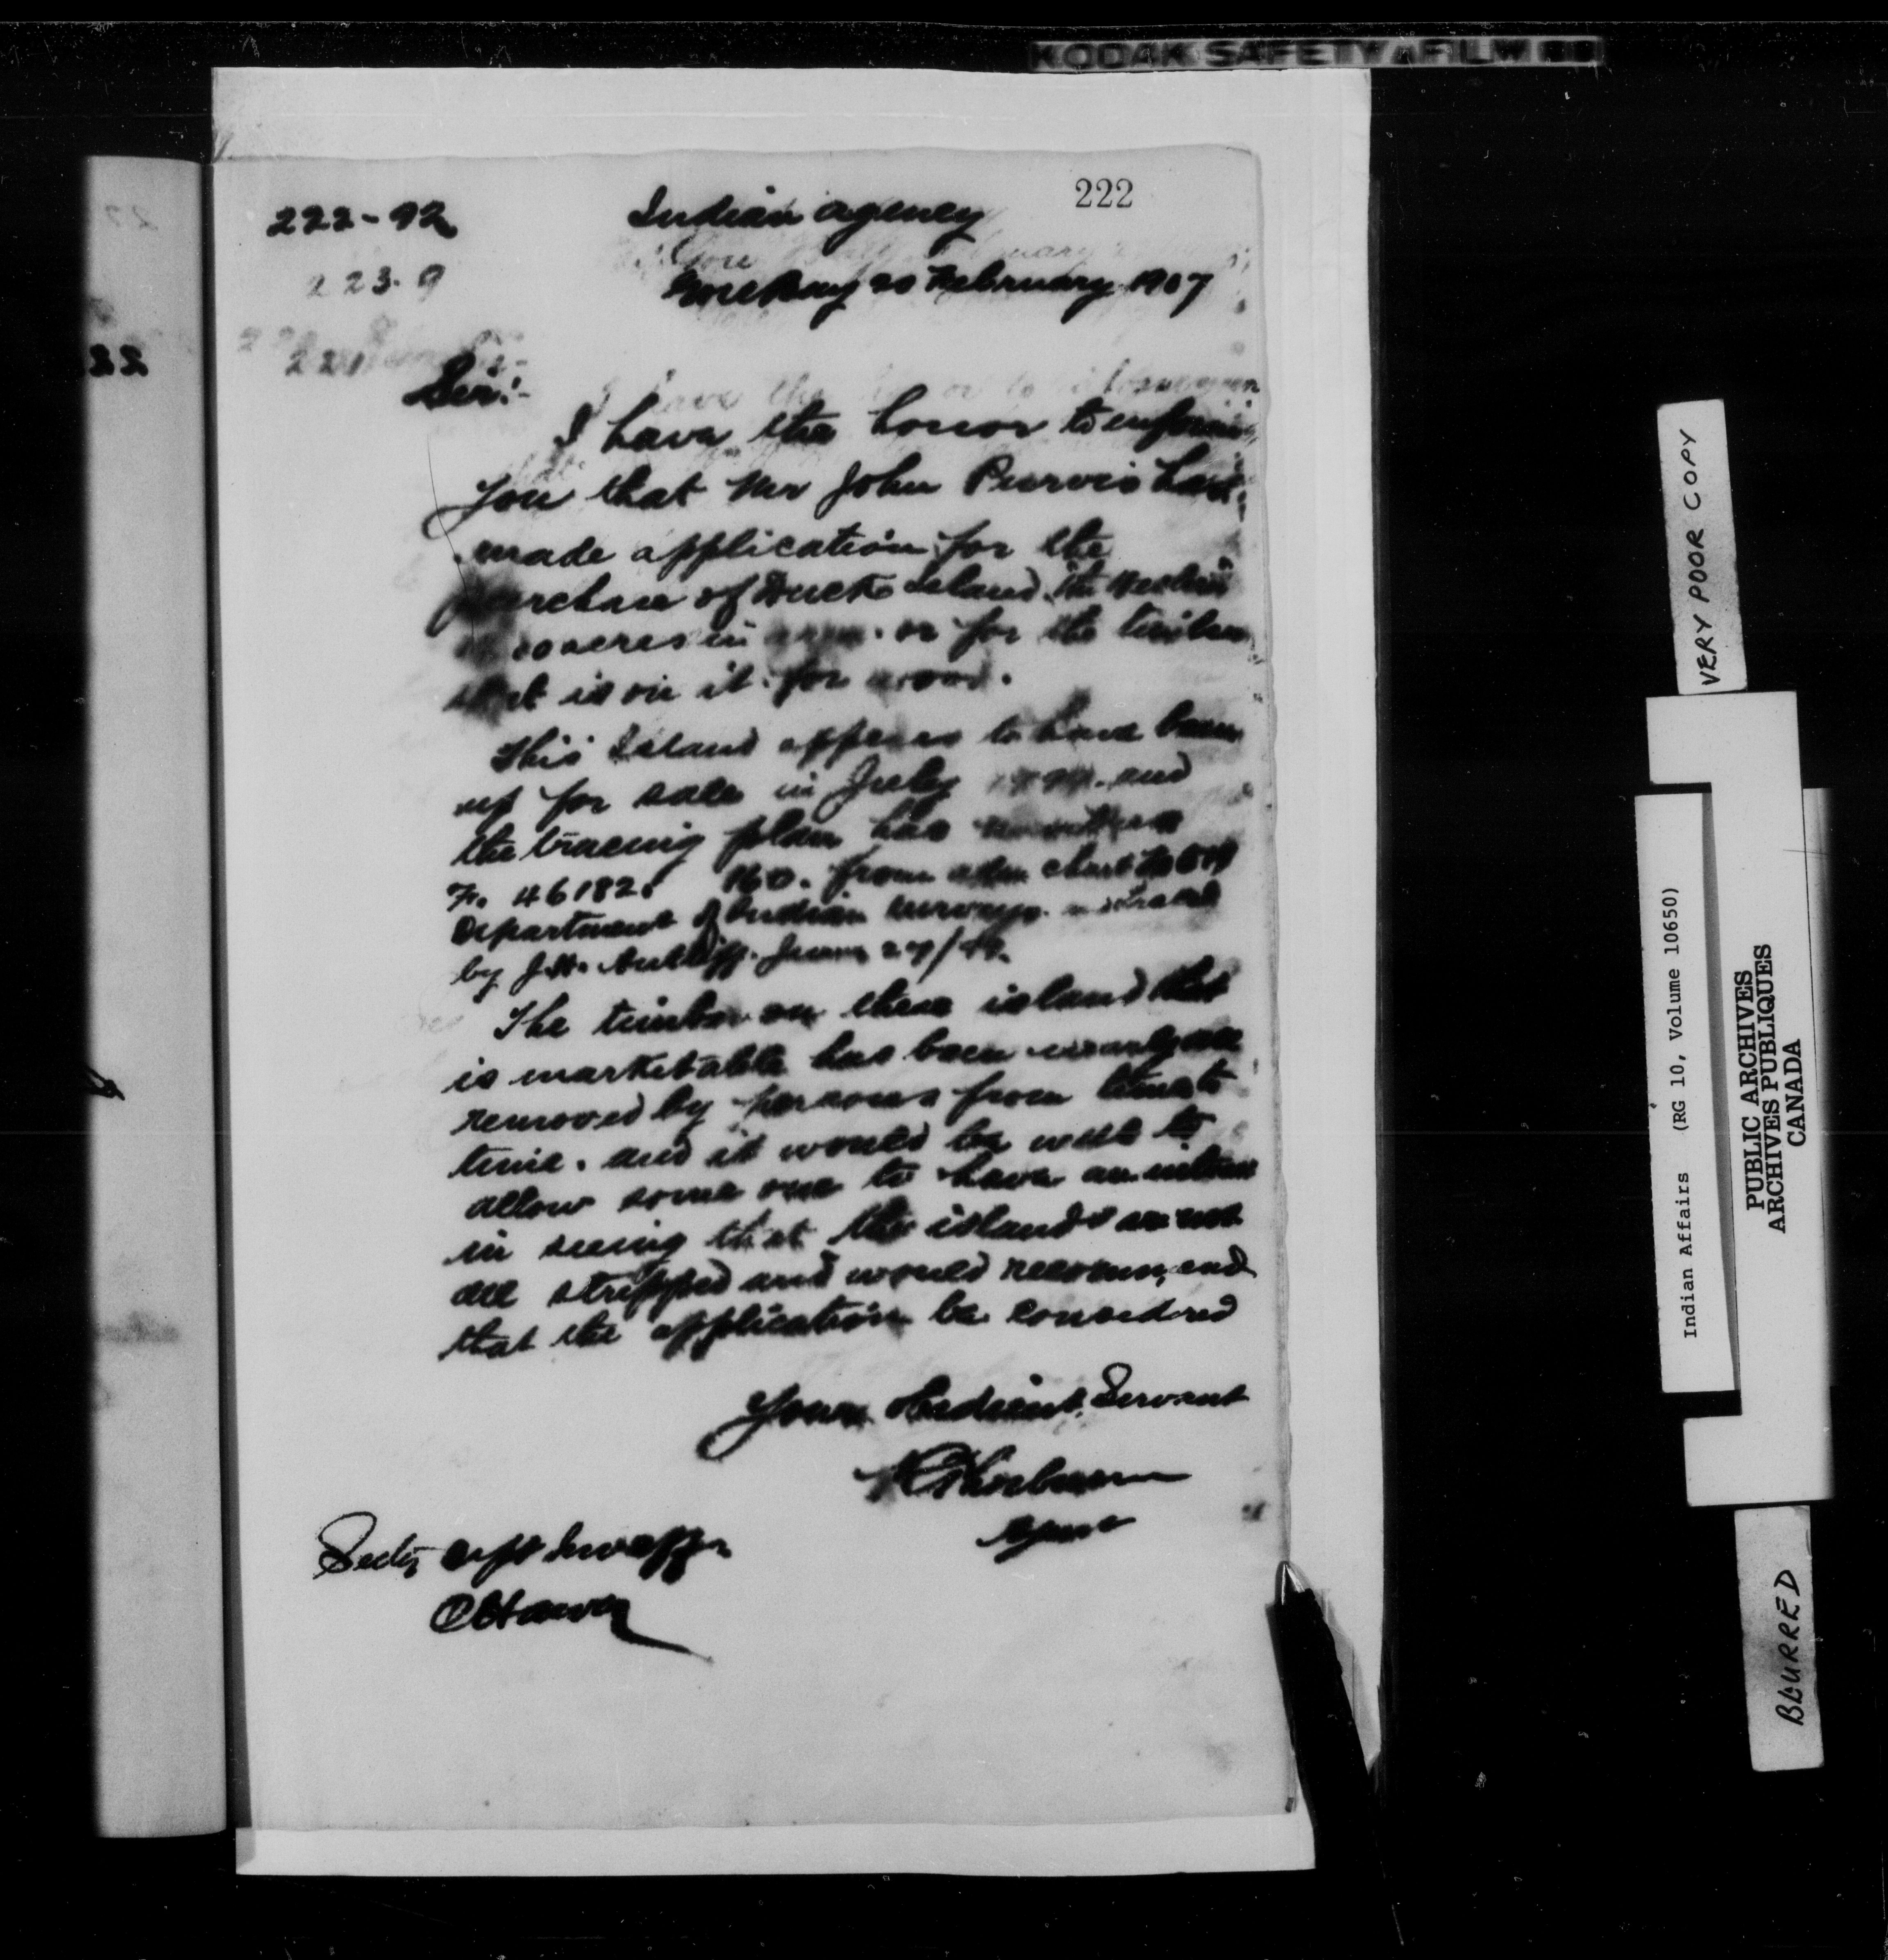 KODAK SAFETY FILM
222
222-92
Indian agency
223-9
Gore Bay 20 February 1907
221
22
Sir:-
I have the honor to inform
you that Mr John Purvis has
made application for the
purchase of Duck Island the
acres in or for the timber
that is on it for
This Island appears to have been
up for sale in July and
the tracing plan has
F. 46182. 160. from chart
Department of Indian surveys.
by J.H. June 27/
The timber on these island that
is marketable has been nearly all
removed by persons from time to
time. and it would be well to
allow some one to have an interest
in seeing that the islands are not
all stripped and would recommend
that the application be considered
Your Obedient Servant
R Thorburn
Agent
Secty Dept Ind Affrs
Ottawa
VERY POOR COPY
Indian Affairs (RG 10, Volume 10650)
PUBLIC ARCHIVES
ARCHIVES PUBLIQUES
CANADA
BLURRED